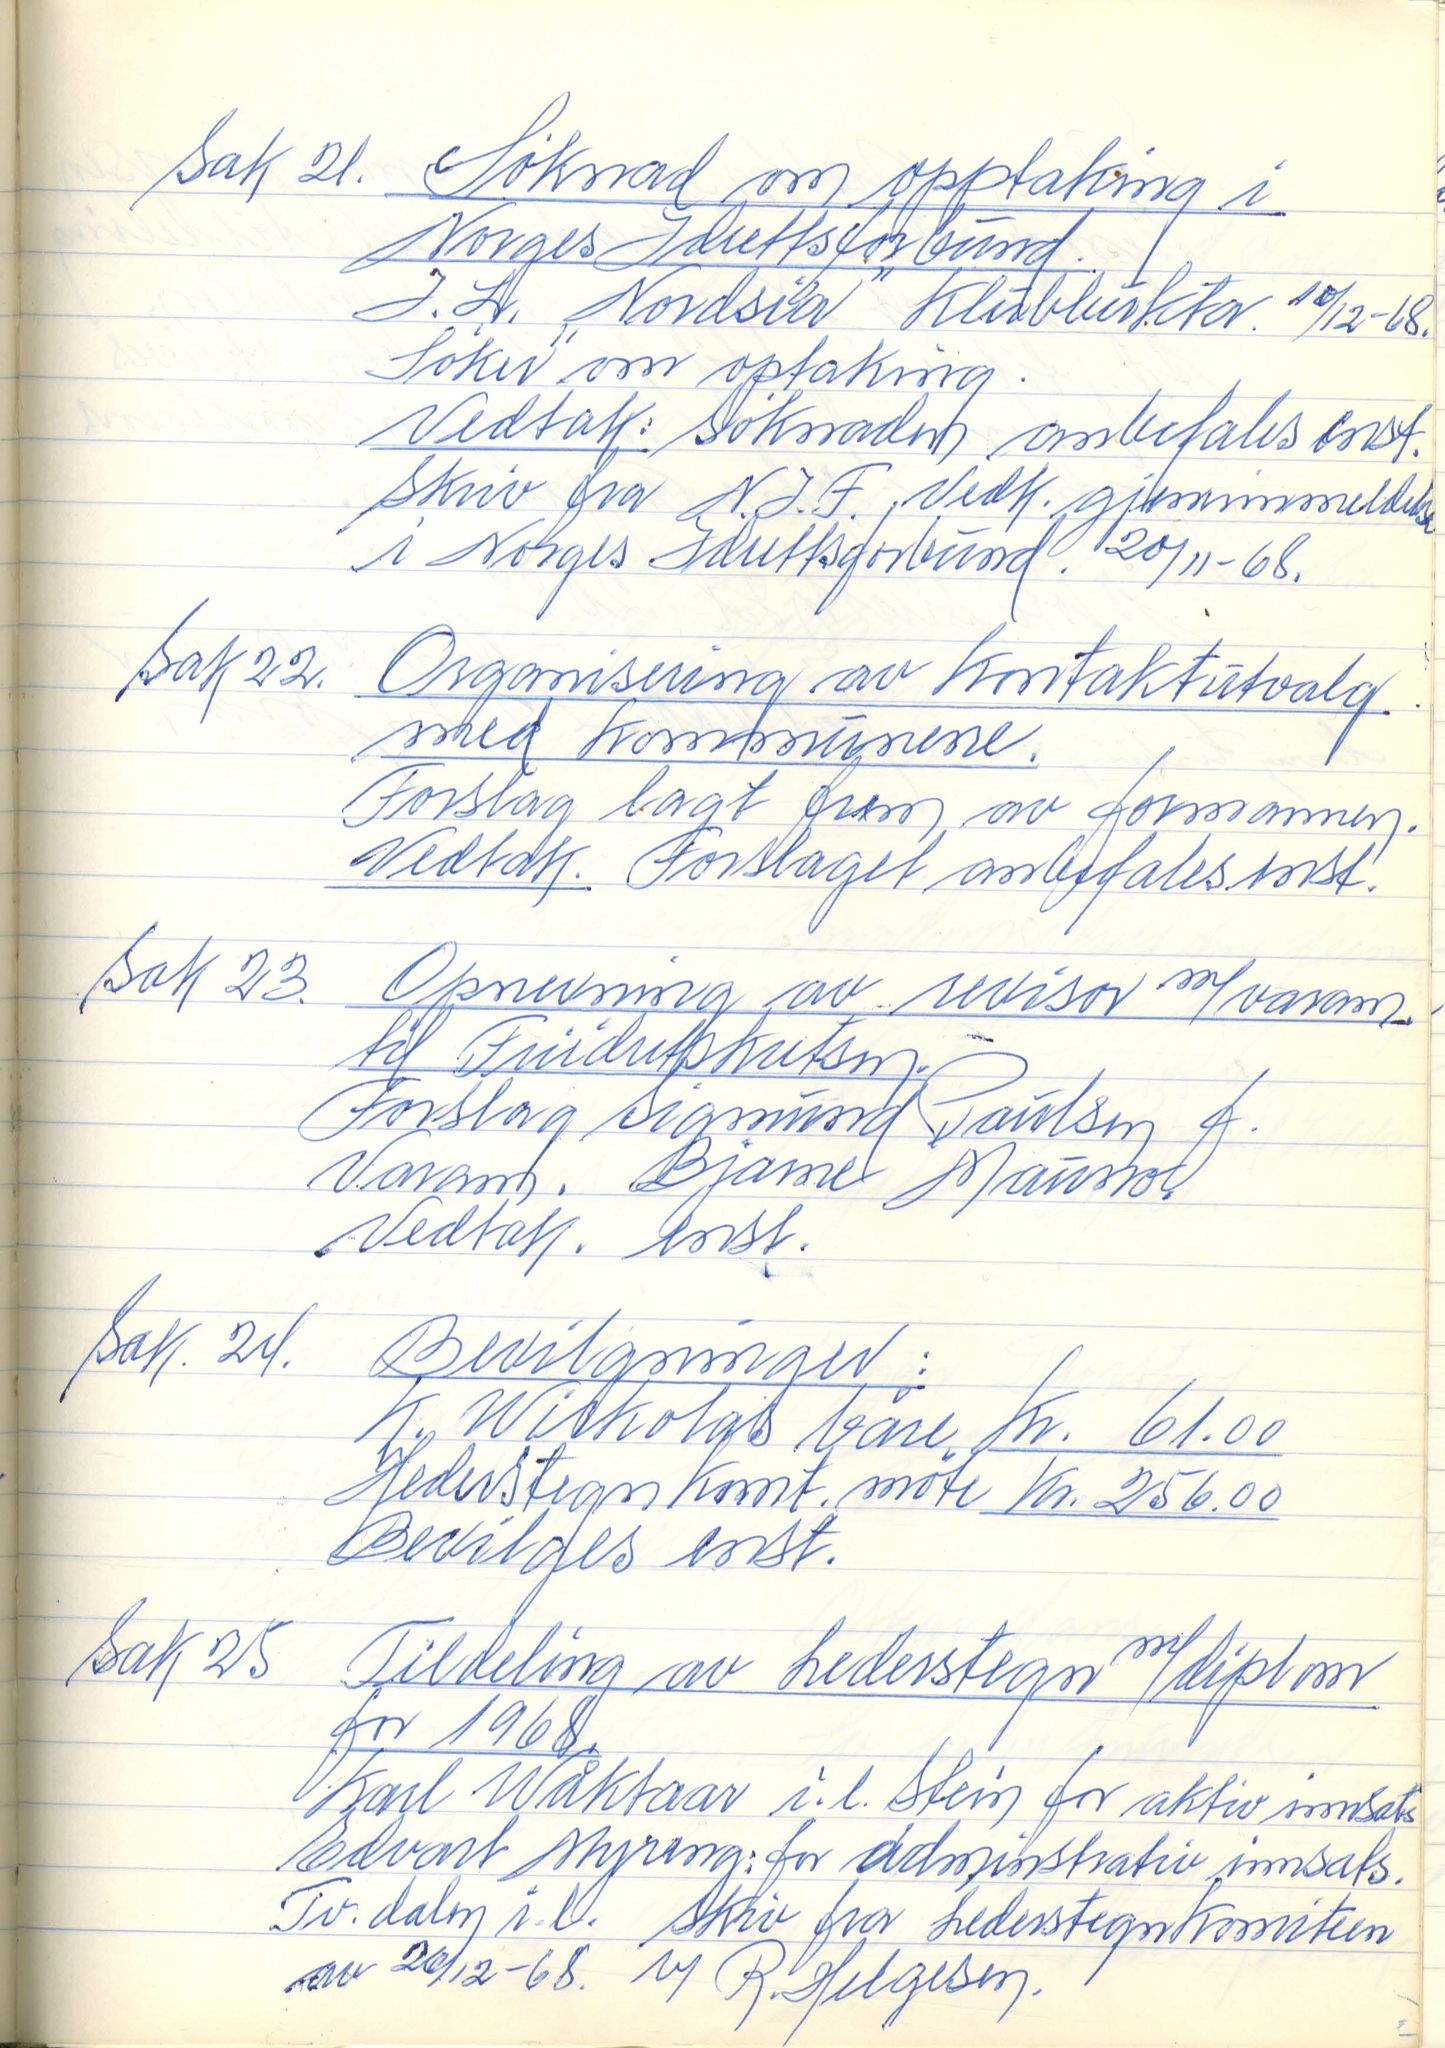 Sak 21. Söknad om opptaking i
Norges Idrettsforbund.
I.L. "Nordsia" Klubblurkta. 10/12-68.
Söker om optaking.
Vedtak: Söknaden anbefales enst.
Skriv fra N.I.F. vedk. gjeninnmeldelse
i Norges Idrettsforbund. 20/11-68.
Sak 22. Organisering av Kontaktutvalg
med Kommunene.
Forslag lagt frem av formannen.
Vedtak. Forslaget anbefales enst.
Sak 23. Opnevning av revisor m/varam.
til Friidrettskretsen.
Forslag Sigmund Paulsen f.
Varam. Bjarne Maurnol
Vedtak. enst.
Sak. 24. Bevilgninger:
K. Wickolds båre. Kr. 61.00
Hederstegn Komt. möte Kr. 256.00
Bevilges enst.
Sak 25 Tildeling av hederstegn m/diplom
for 1968.
Karl Wåktaar i.l. Stein for aktiv innsats
Edvart Myreng: for adminstrativ innsats.
Tv. dalen i.l. Skriv fra hederstegnkomiteen
av 20/12-68. v/ R. Helgesen.